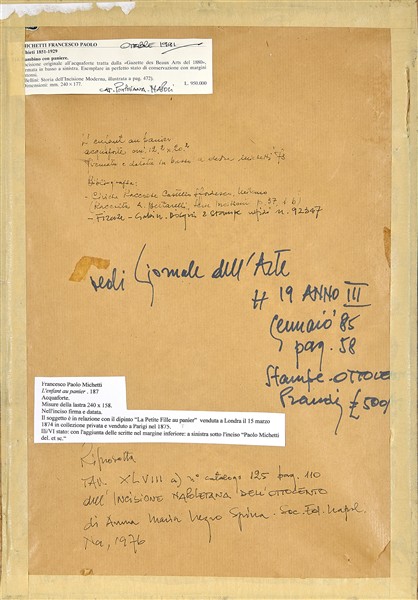 MICHETTI FRANCESCO PAOLO
Chieti 1851-1929
Bambino con paniere.
Incisione originale all'acquaforte tratta dalla «Gazette des Beaux Arts del 1880»,
firmata in basso a sinistra. Esemplare in perfetto stato di conservazione con margini
(Bellini: Storia dell'Incisione Moderna, illustrata a pag. 472).
Dimensioni: mm. 240 x 177.
L. 950.000
OTTOBRE 1981
CAT. NAPOLI
L'enfant au panier
acquaforte
Firmata e datata in basso a destra
Bibliografia:
- Civica Raccolta Castello Sforzesco, Milano
(Raccolta A. Bertarelli,
- Firenze - Gabin. Disegni e Stampe Uffizi n. 92367
Vedi Giornale dell'Arte
# 19 ANNO III
Gennaio '85
pag. 58
Stampe - OTTOCE
Prandi £ 500
Francesco Paolo Michetti
L'enfant au panier . 187
Acquaforte.
Misure della lastra 240 x 158.
Nell'inciso firma e datata.
Il soggetto è in relazione con il dipinto "La Petite Fille au panier" venduta a Londra il 15 marzo
1874 in collezione privata e venduto a Parigi nel 1875.
III/VI stato: con l'aggiunta delle scritte nel margine inferiore: a sinistra sotto l'inciso "Paolo Michetti
del. et sc."
Riprodotta
TAV. XLVIII a) n° catalogo 125 pag. 110
dell'INCISIONE NAPOLETANA DELL'OTTOCENTO
di Anna Maria Negro Spina - Soc. Ed. Napol.
Na, 1976